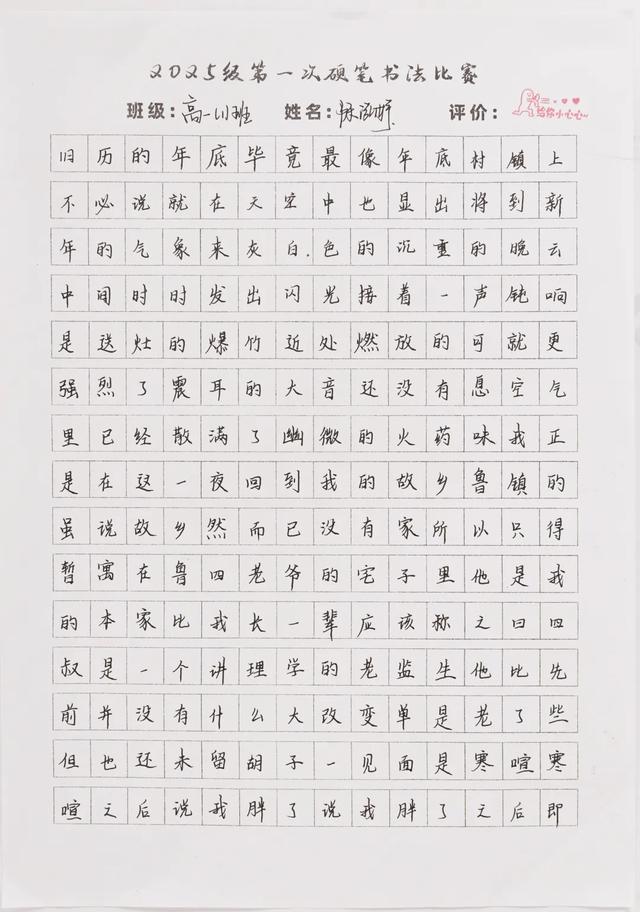 2025级第一次硬笔书法比赛
班级：高一(1)班 姓名： 评价： 给你小心心...
旧历的年底毕竟最像年底村镇上
不必说就在天空中也显出将到新
年的气象来灰白.色的沉重的晚云
中间时时发出闪光接着一声钝响
是送灶的爆竹近处燃放的可就更
强烈了震耳的大音还没有息空气
里已经散满了幽微的火药味我正
是在这一夜回到我的故乡鲁镇的
虽说故乡然而已没有家所以只得
暂寓在鲁四老爷的宅子里他是我
的本家比我长一辈应该称之曰四
叔是一个讲理学的老监生他比先
前并没有什么大改变单是老了些
但也还未留胡子一见面是寒暄寒
暄之后说我胖了说我胖了之后即